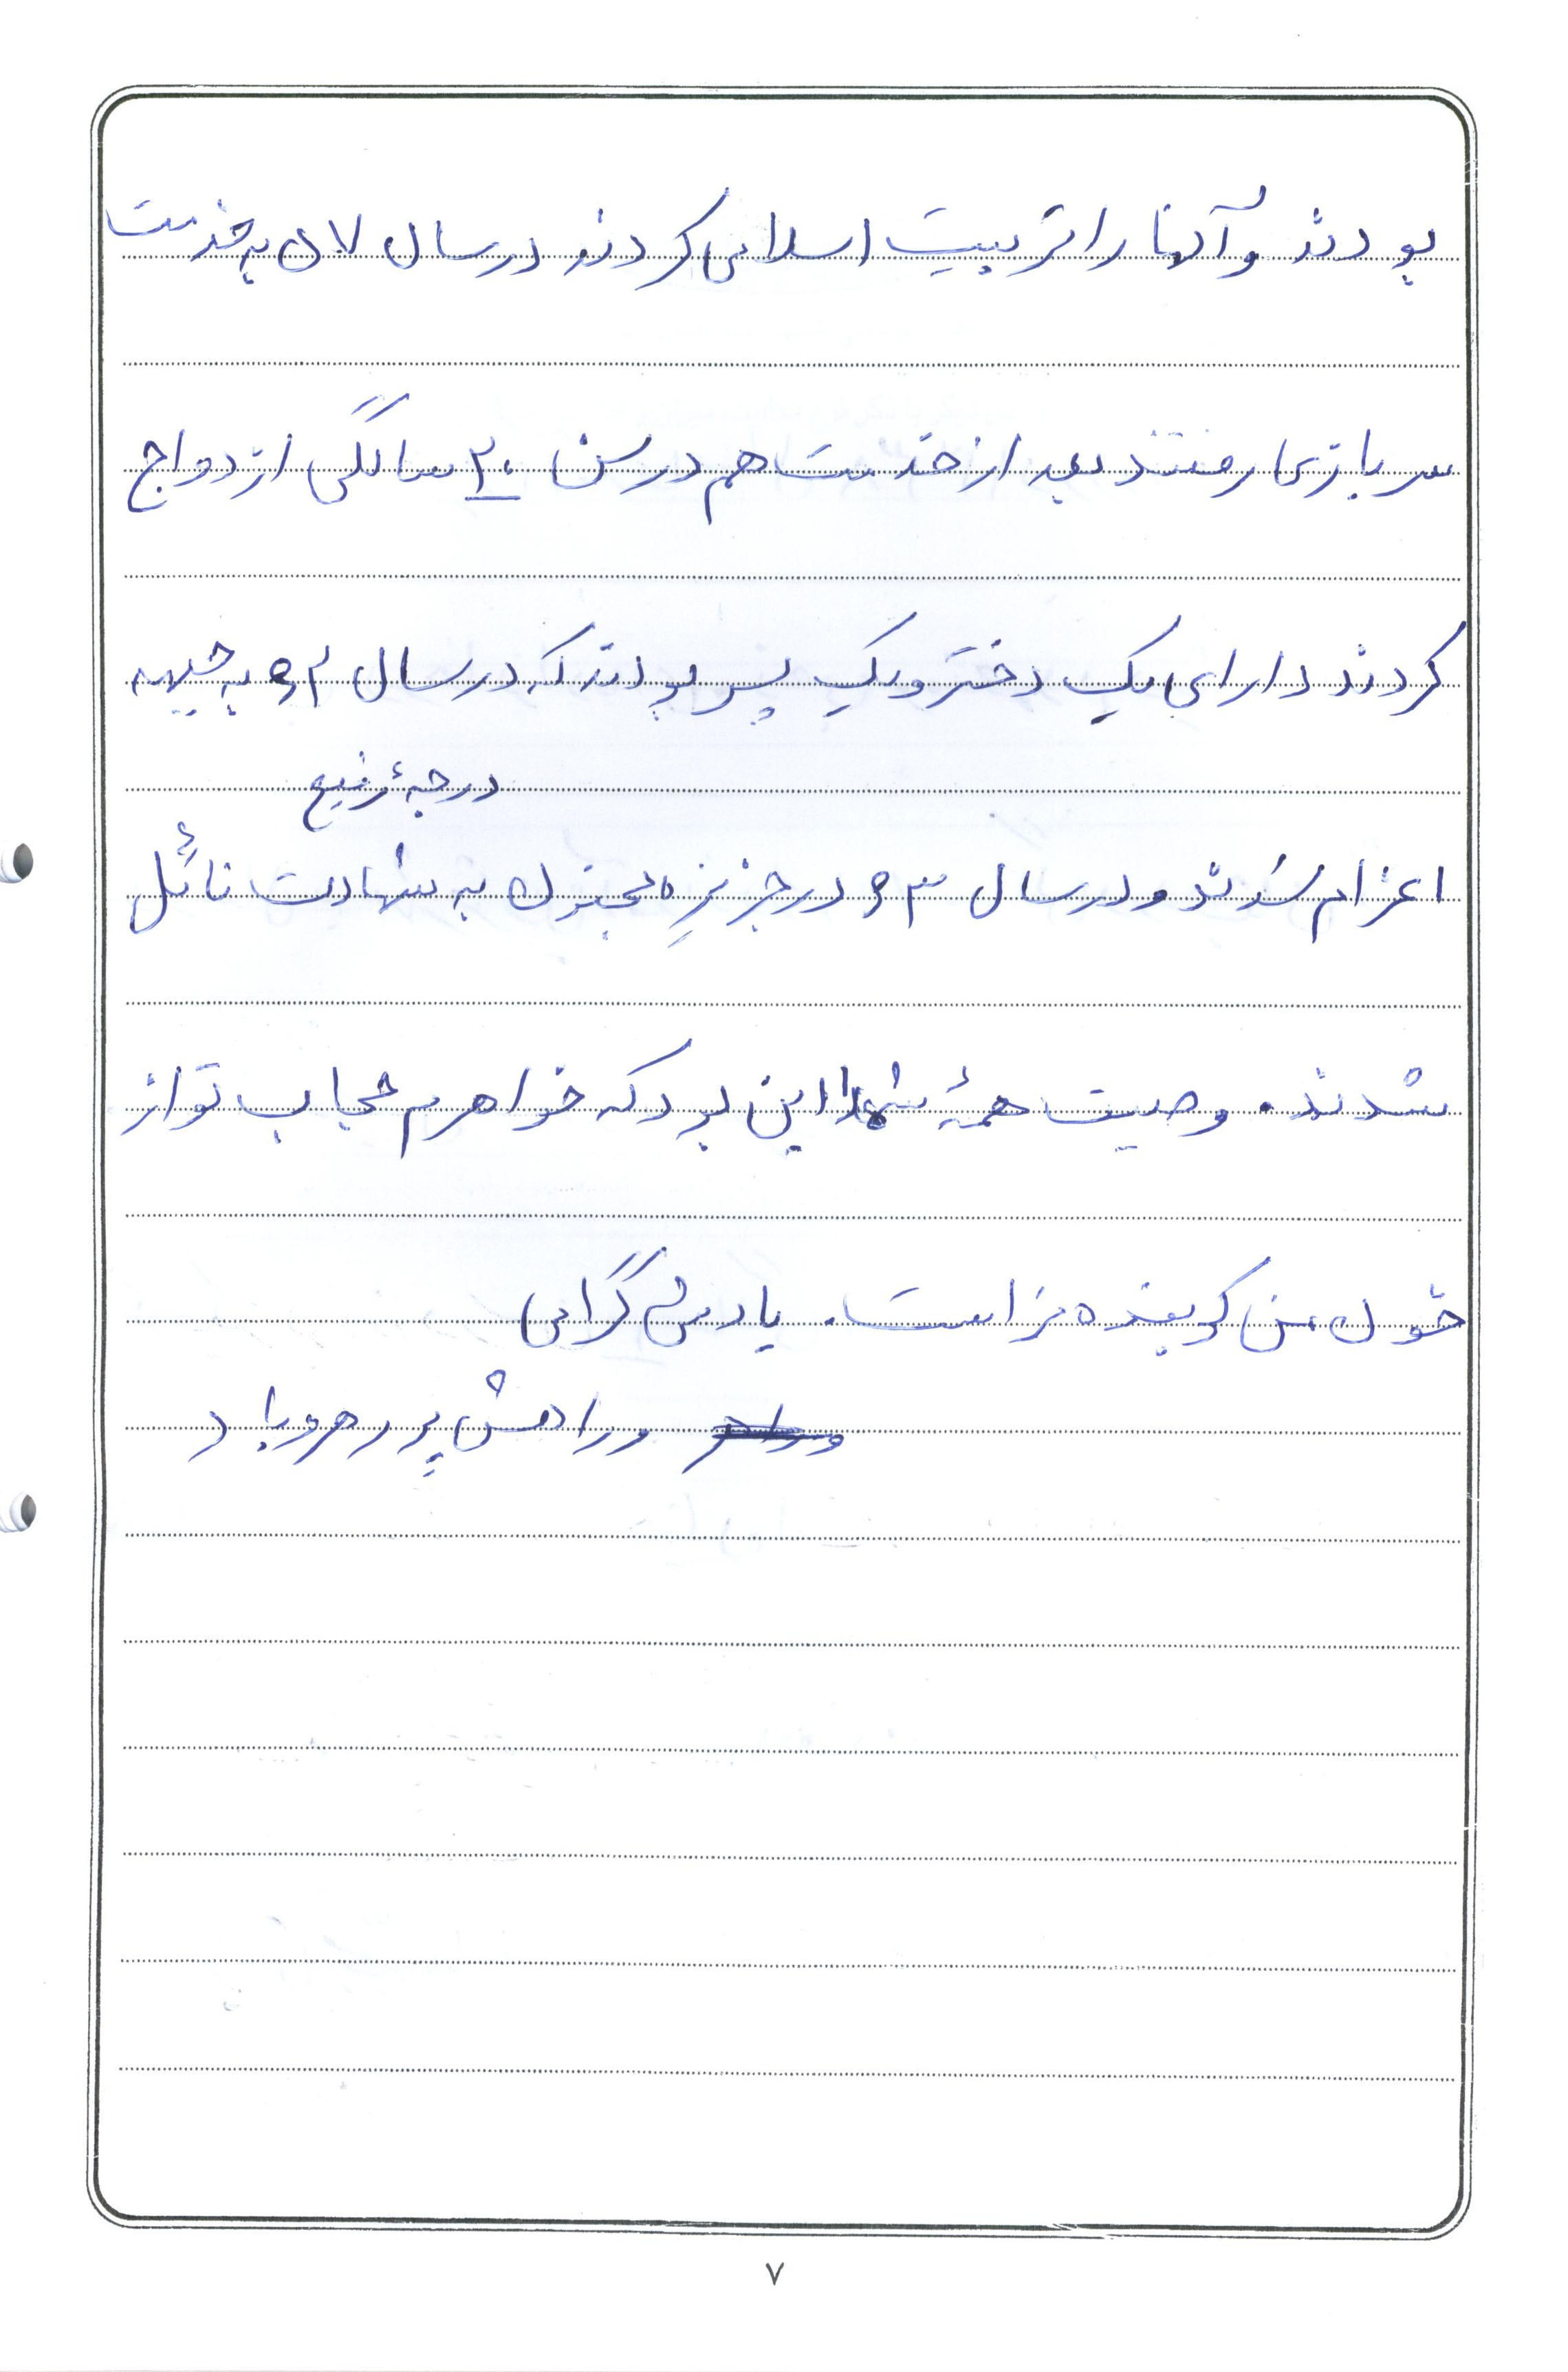 بودند و آنها را تربیت اسلامی کردند در سال ۵۷ به خدمت
سربازی رفتند بعد از خدمت هم در سن ۲۰ سالگی ازدواج
کردند دارای یک دختر و یک پسر بودند که در سال ۶۲ به جبهه
درجهٔ رفیع
اعزام شدند و در سال ۶۳ در جزیرهٔ مجنون به شهادت نائل
شدند. وصیت همهٔ شهدا این بود که خواهرم حجاب تو از
خون من کوبنده تر است. یادش گرامی
و راهش پر رهرو باد
۷